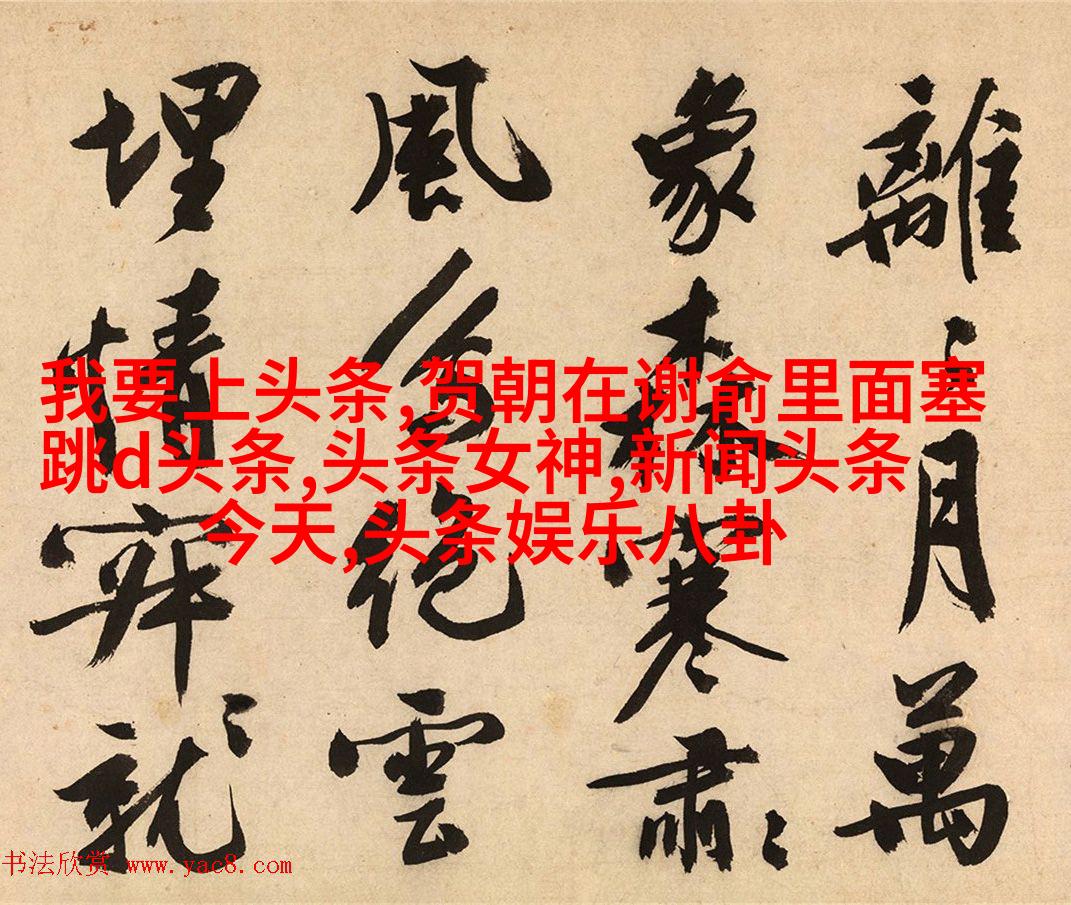 離〻月萬
象森寒肅〻
風絕雲
埋情就〻
我要上头条,贺朝在谢俞里面塞
跳d头条,头条女神,新闻头条
今天,头条娱乐八卦
书法欣赏 www.yac8.com